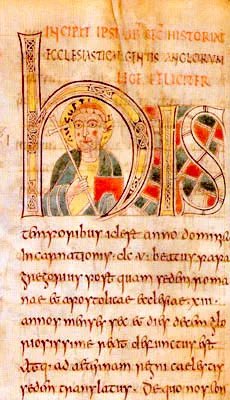 INCIPIT IPSIUS HISTORIAE
ECCLESIASTICAE GENTIS ANGLORUM
LEGE FELICITER
HIS
temporibus id est anno domini
incarnationis dc.v beatus papa
gregorius postquam sedem roma
nae et apostolicae eclesiae xiii
annos menses sex et dies decem glo
riosissime rexit defunctus est
atq. ad aeternam regni caelestis
sedem translatus. De quo nos